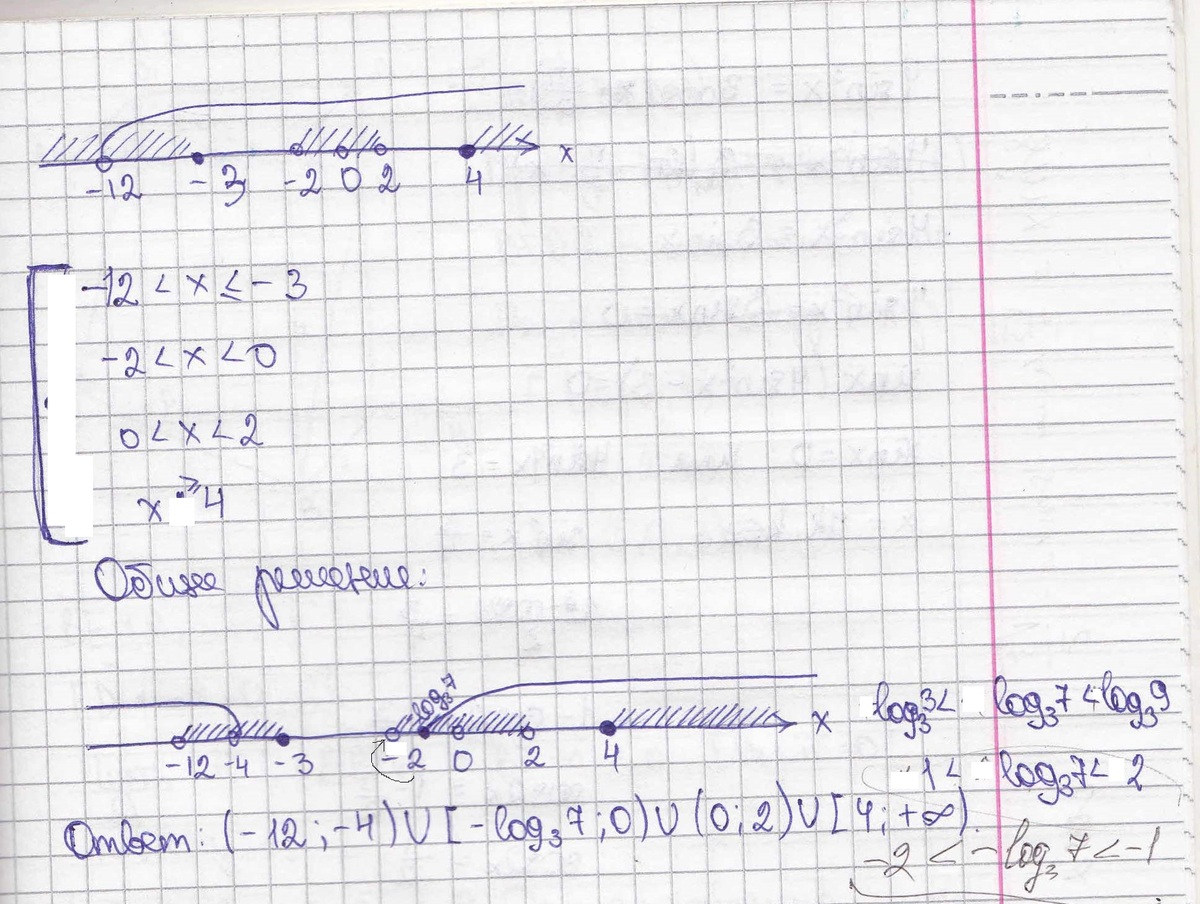 -12 -3 -2 0 2 4 x
-12 < x ≤ -3
-2 < x < 0
0 < x < 2
x ≥ 4
Общее решение:
log₃7
-12 -4 -3 -2 0 2 4 x
log₃3 < log₃7 < log₃9
1 < log₃7 < 2
Ответ: (-12; -4) ∪ [-log₃7; 0) ∪ (0; 2) ∪ [4; +∞).
-2 < -log₃7 < -1